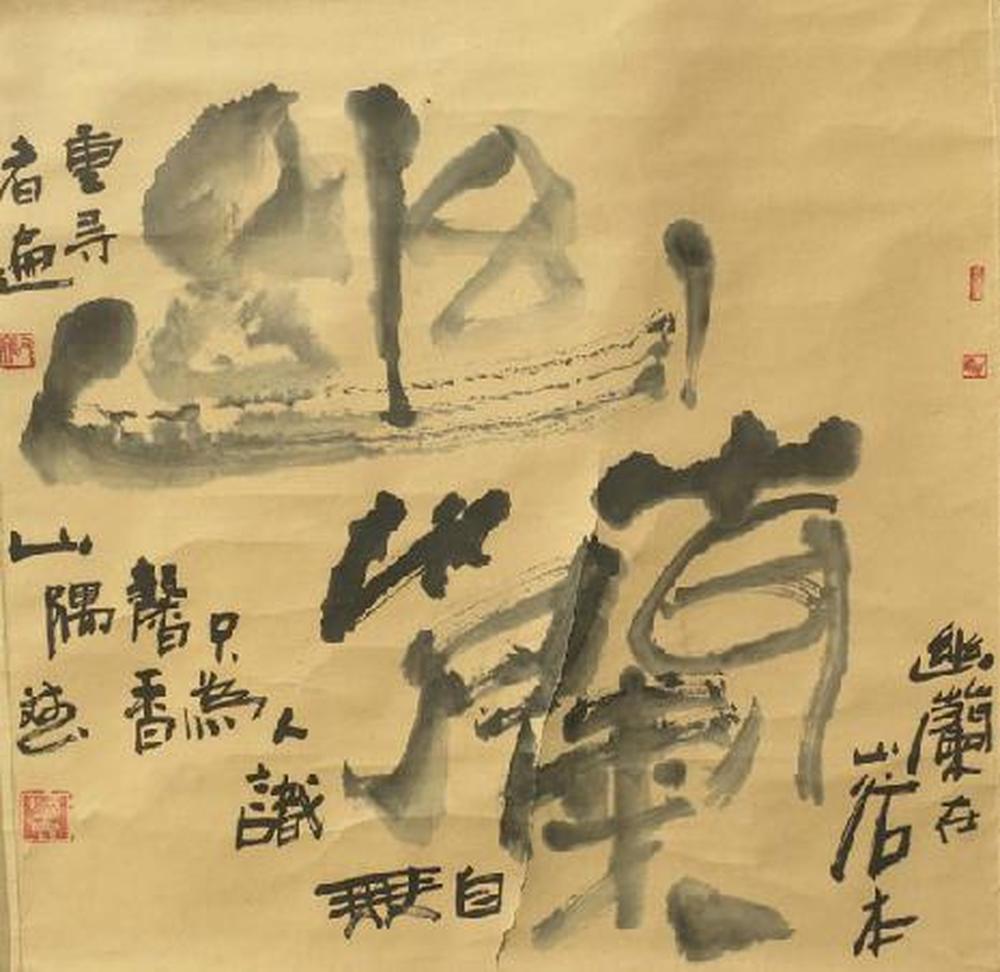 幽蘭
幽蘭在
山谷本
自無
人識
只為
馨香
重尋
者遍
山隅